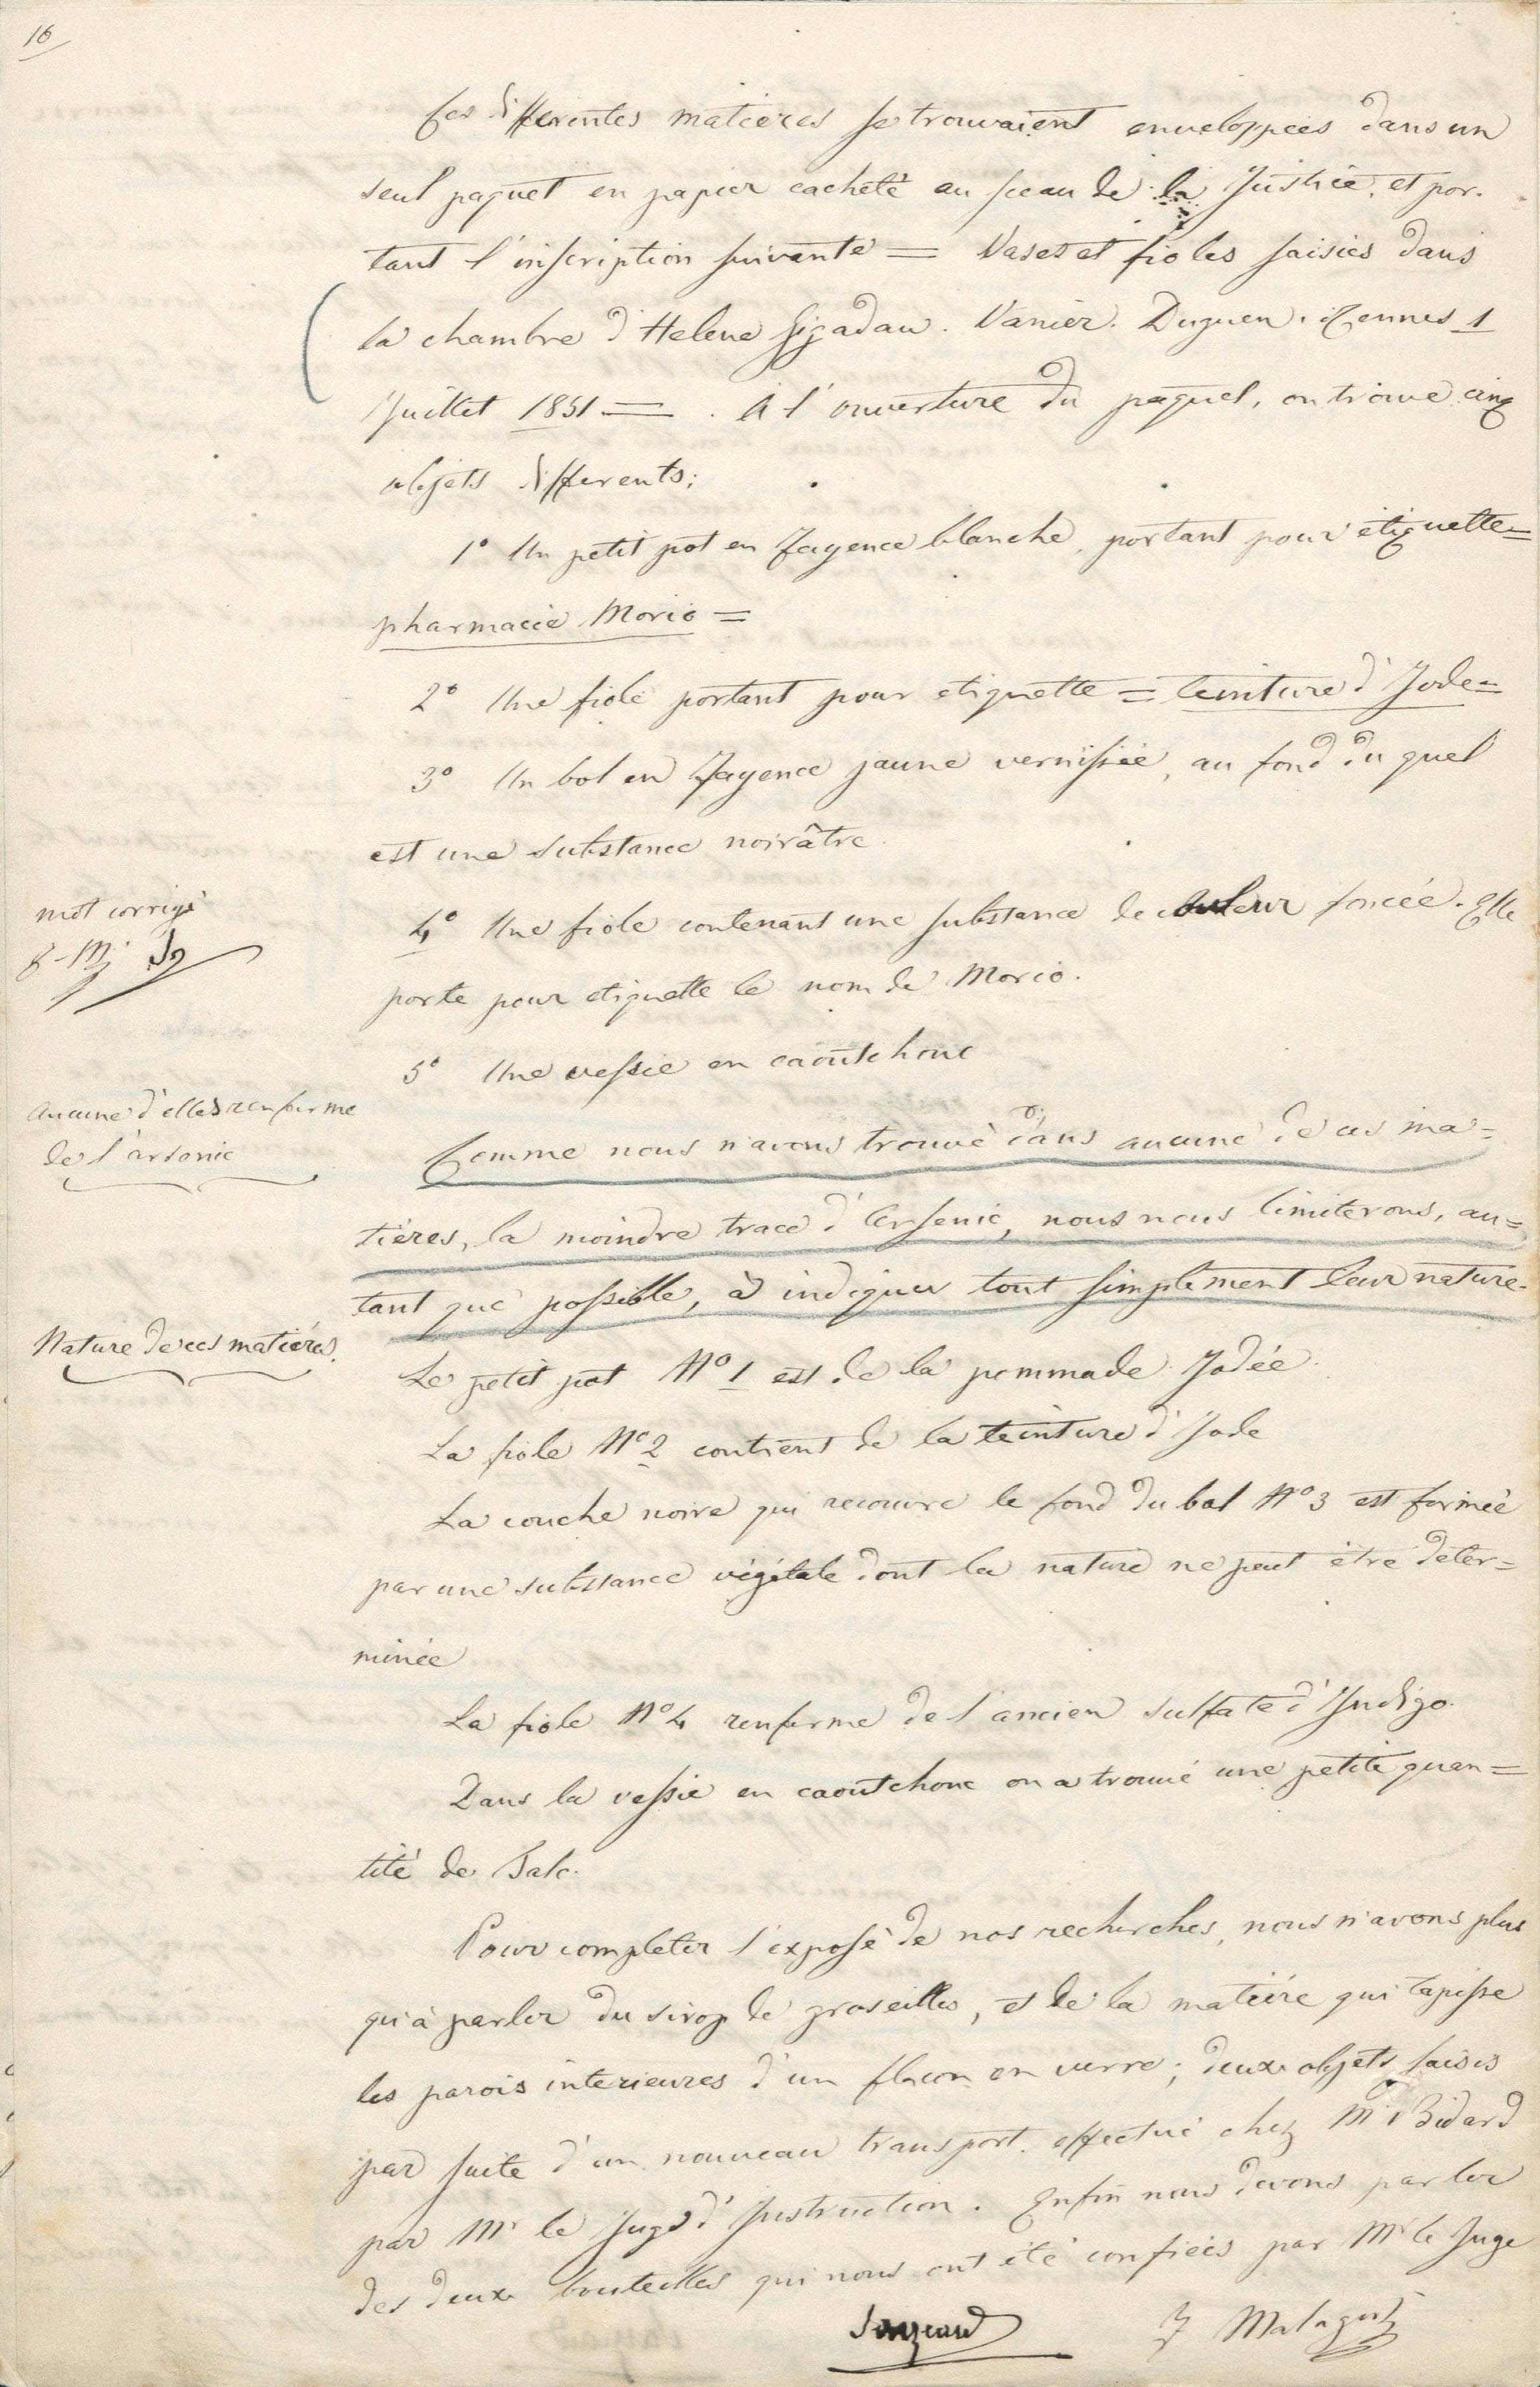 16
Ces differentes matieres se trouvaient enveloppées dans un
seul paquet en papier cacheté au sceau de la Justice, et por-
tant l'inscription suivante = Vases et fioles saisies dans
la chambre d'Helene Jégadau. Vanier. Duguen. Rennes 1
Juillet 1851 = . A l'ouverture du paquet, on trouve cinq
objets differents;
1° Un petit pot en fayence blanche, portant pour étiquette =
pharmacie Morio =
2° Une fiole portant pour etiquette = teinture d'Jode =
3° Un bol en fayence jaune vernissée, au fond du quel
est une substance noirâtre.
mot corrigé
4° Une fiole contenant une substance de couleur foncée. Elle
porte pour etiquette le nom de Morio.
5° Une vessie en caoutchouc
aucune d'elles renferme
de l'arsenic
Comme nous n'avons trouvé dans aucune de ces ma=
tières, la moindre trace d'Arsenic, nous nous limiterons, au=
tant que possible, à indiquer tout simplement leur nature.
Nature de ces matières.
Le petit pot N° 1 est de la pommade Jodée.
La fiole N° 2 contient de la teinture d'Jode
La couche noire qui recouvre le fond du bol N° 3 est formée
par une substance végétale dont la nature ne peut être déter=
minée
La fiole N° 4 renferme de l'ancien sulfate d'Indigo.
Dans la vessie en caoutchouc on a trouvé une petite quan=
tité de Talc.
Pour completer l'exposé de nos recherches, nous n'avons plus
qu'à parler du sirop de groseilles, et de la matière qui tapisse
les parois interieures d'un flacon en verre; deux objets saisis
par suite d'un nouveau transport effectué chez Mr Bidard
par Mr le Juge d'Instruction. Enfin nous devons parler
des deux bouteilles qui nous ont été confiées par Mr le Juge
F Malaguti